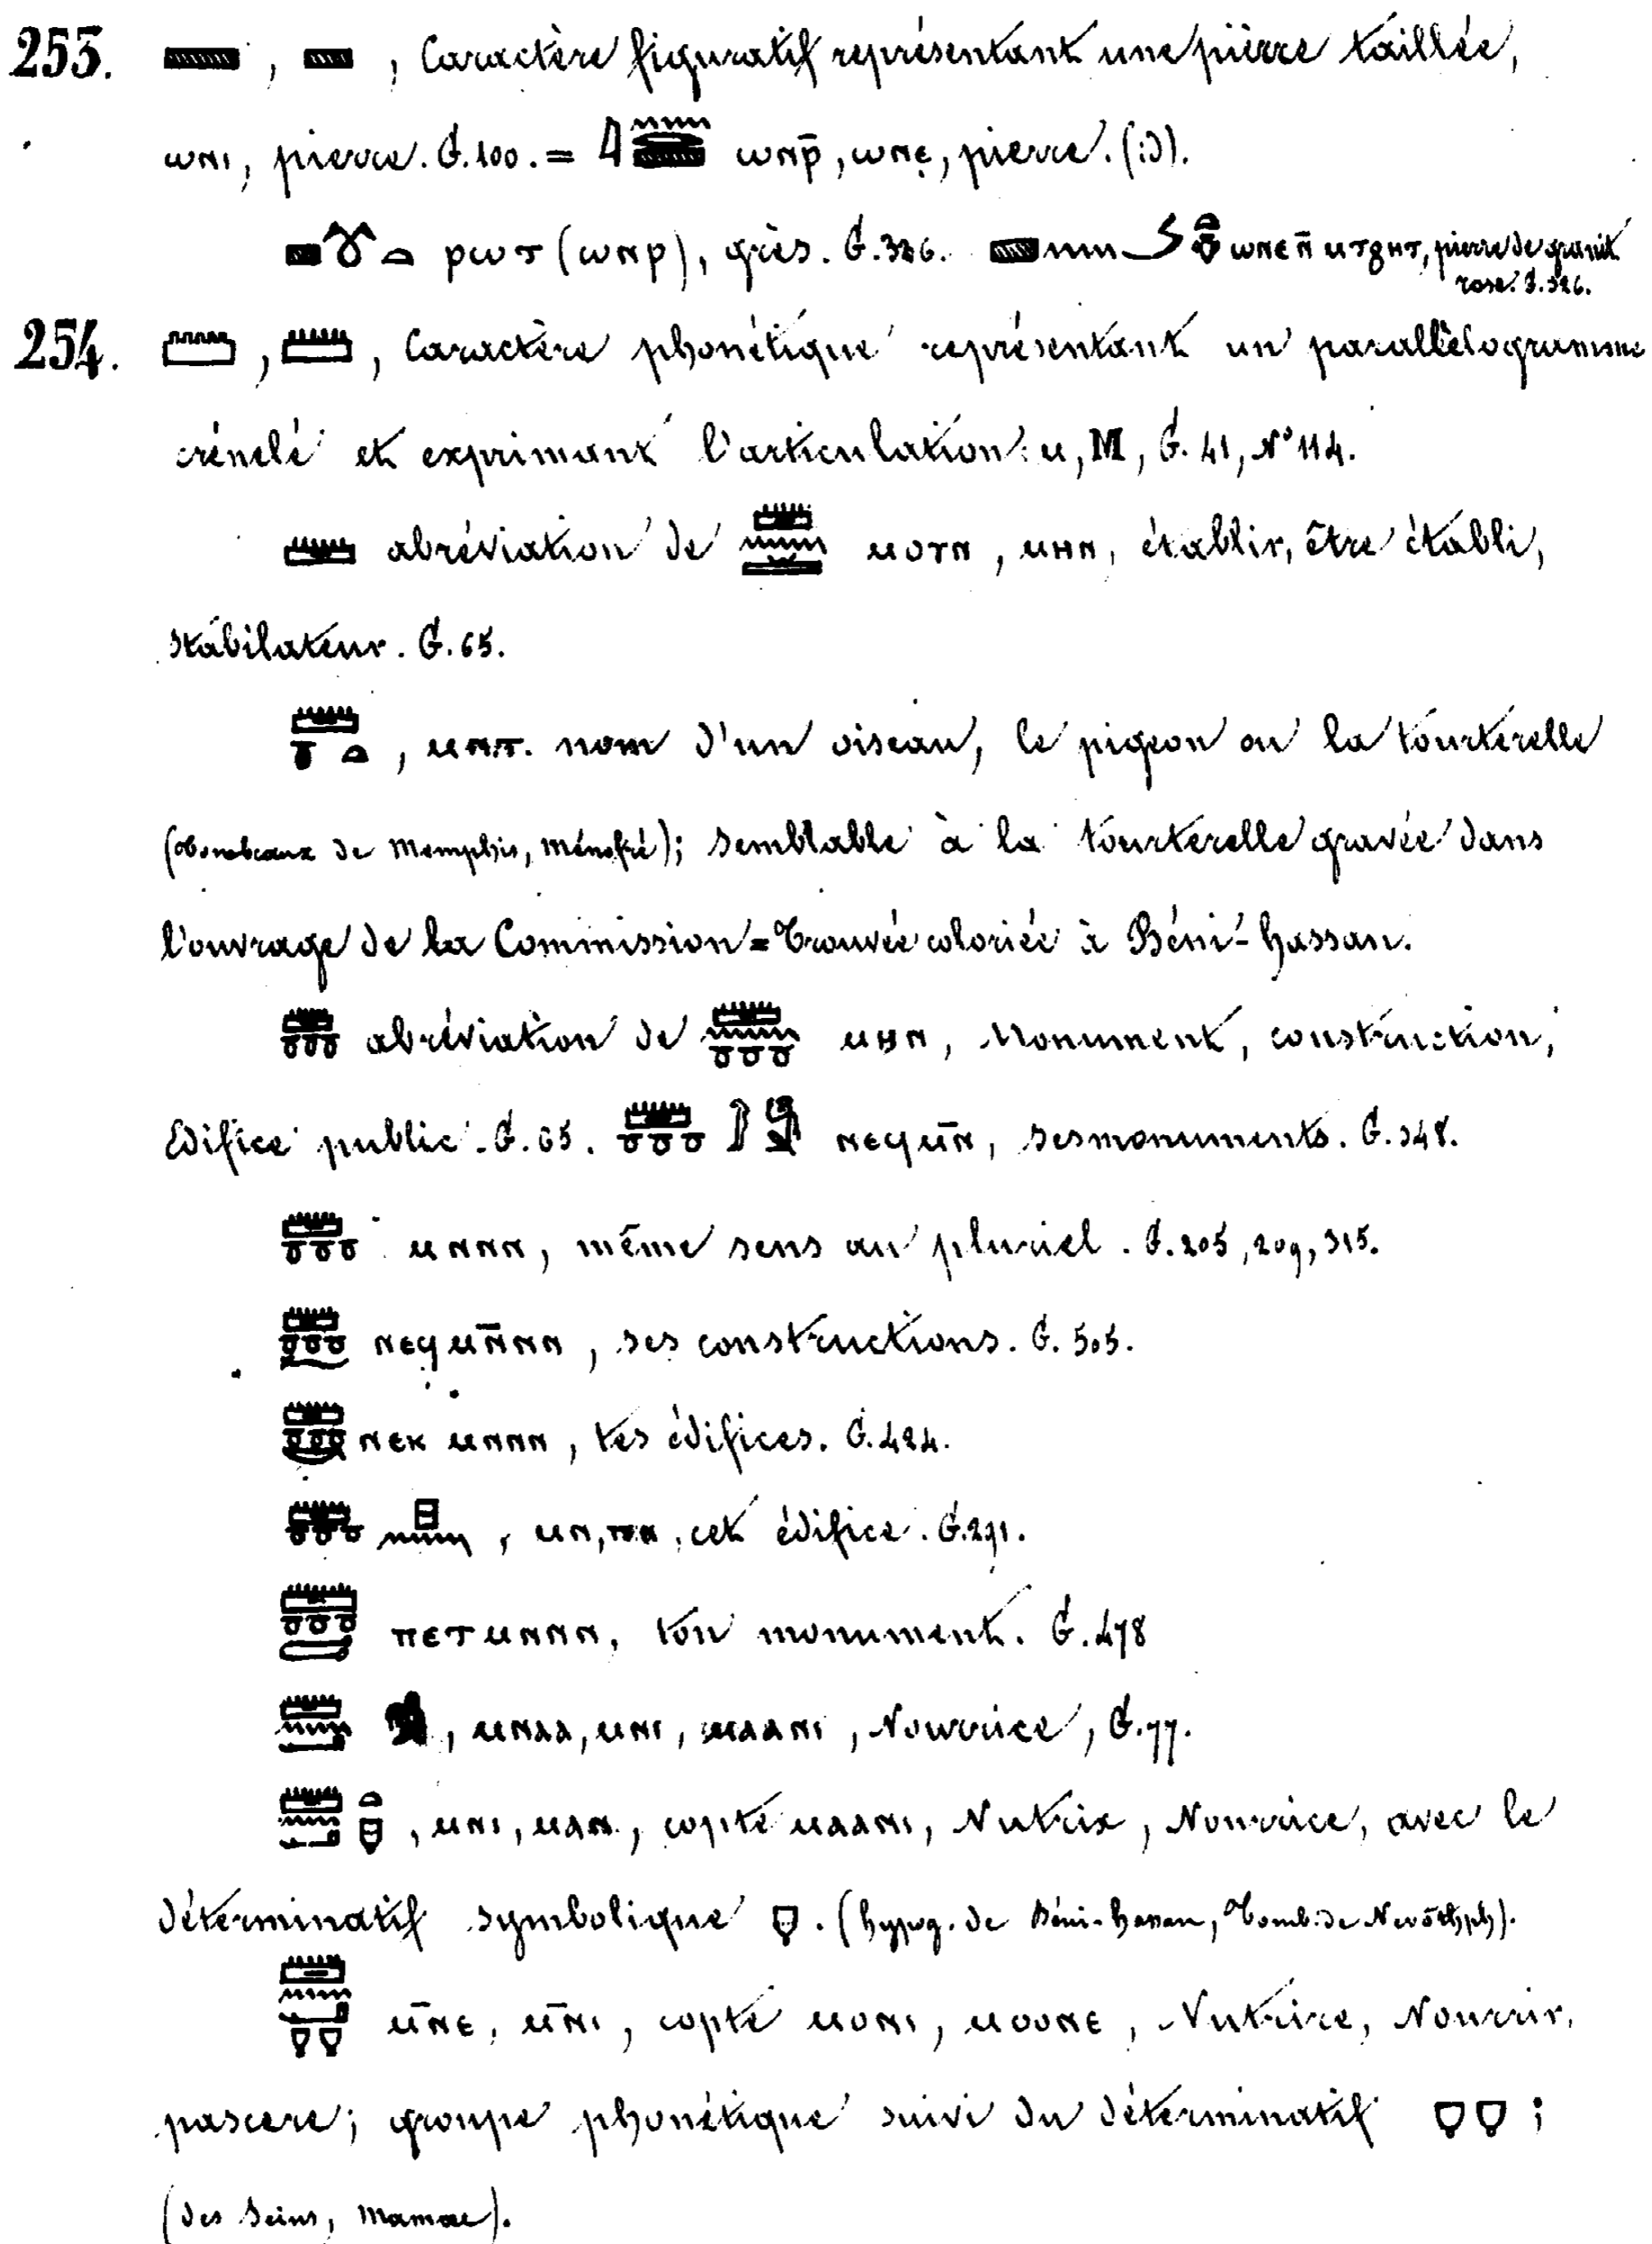 253. 𓈇, 𓈇, Caractère figuratif représentant une pierre taillée,
ⲱⲛⲓ, pierre. G. 100. = ⲱⲛⲣ̄, ⲱⲛⲉ, pierre. (id).
ⲣⲱⲧ (ⲱⲛⲣ), grès. G. 326. ⲱⲛⲉ ⲛ̄ ⲙⲧϩⲏⲧ, pierre de granit
rose. G. 326.
254. 𓏠, 𓏠, Caractère phonétique représentant un parallèlogramme
crénelé et exprimant l'articulation: ⲙ, M, G. 41, Nº 114.
𓏠 abréviation de ⲙⲟⲩⲛ, ⲙⲏⲛ, établir, être établi,
stabilateur. G. 65.
, ⲙⲛⲧ. nom d'un oiseau, le pigeon ou la tourterelle
de Memphis, Ménofré); semblable à la tourterelle gravée dans
l'ouvrage de la Commission = Trouvée coloriée à Béni-hassan.
abréviation de ⲙⲏⲛ, Monument, construction,
Edifice public. G. 65. ⲛⲉϥⲙⲛ̄, ses monuments. G. 348.
ⲙⲛⲛⲛ, même sens au pluriel. G. 205, 209, 315.
ⲛⲉϥⲙⲛ̄ⲛⲛ, ses constructions. G. 505.
ⲛⲉⲕ ⲙⲛⲛⲛ, tes édifices. G. 424.
, ⲙⲛ, ⲡⲛ, cet édifice. G. 291.
ⲡⲉⲧⲙⲛⲛⲛ, ton monument. G. 478
, ⲙⲛⲁⲁ, ⲙⲛⲓ, ⲙⲁⲁⲛⲓ, Nourrice, G. 77.
, ⲙⲛⲓ, ⲙⲁⲛ, copte ⲙⲁⲁⲛⲓ, Nutrix, Nourrice, avec le
déterminatif symbolique . (hypog. de Béni-hassan, Tomb. de Nevôthph).
ⲙ̄ⲛⲉ, ⲙ̄ⲛⲓ, copte ⲙⲟⲛⲓ, ⲙⲟⲟⲛⲉ, Nutrire, Nourrir,
pascere; groupe phonétique suivi du déterminatif ;
(des Seins, Mamae).